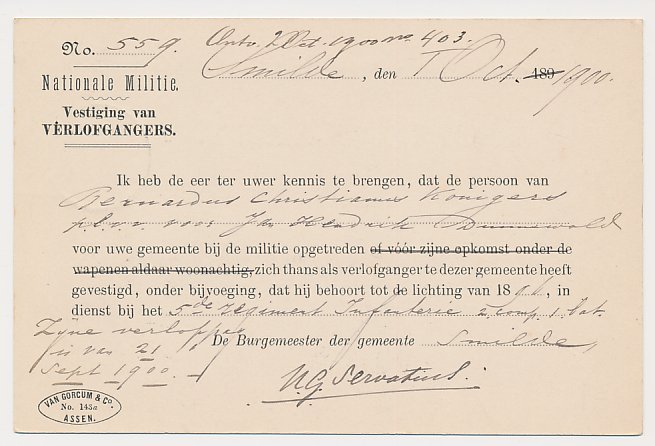 No. 559.
Ontv. 2 Oct. 1900 no 403.
Smilde, den 1 Oct. 189 1900.
Nationale Militie.
Vestiging van
VERLOFGANGERS.
Ik heb de eer ter uwer kennis te brengen, dat de persoon van
Bernardus Christianus Konigers
p.l.v.v. voor Jan Hendrik Dunnewold
voor uwe gemeente bij de militie opgetreden of vóór zijne opkomst onder de
wapenen aldaar woonachtig, zich thans als verlofganger te dezer gemeente heeft
gevestigd, onder bijvoeging, dat hij behoort tot de lichting van 18, in
dienst bij het 5de regiment Infanterie 2 comp. 1 bat.
Zijne verlofpas
is van 21
Sept 1900.
De Burgemeester der gemeente Smilde,
VAN GORCUM & Co.
No. 143a
ASSEN.